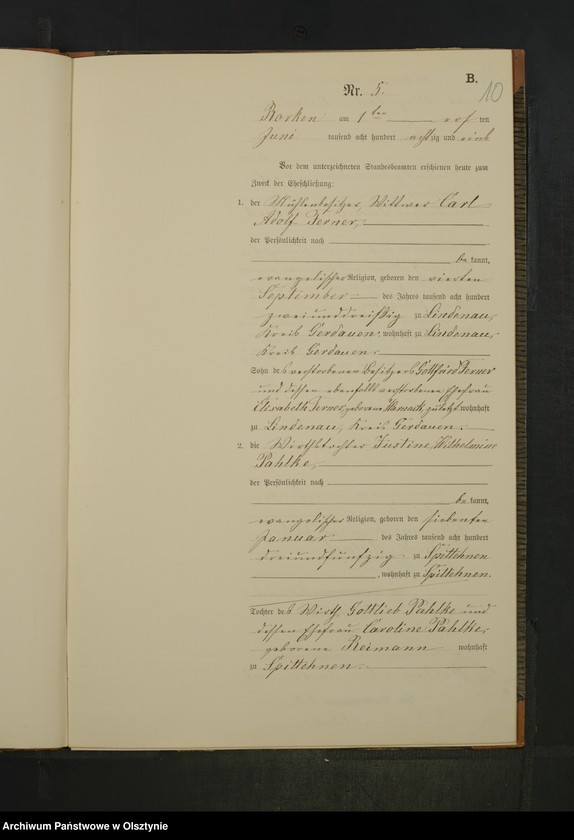 B.
10
Nr. 5.
Rorken am 1ten
Juni tausend acht hundert achtzig und eins
Vor dem unterzeichneten Standesbeamten erschienen heute zum
Zweck der Eheschließung:
1. der Mühlenbesitzer, Wittwer Carl
Adolf Ferner,
der Persönlichkeit nach
bekannt,
evangelischer Religion, geboren den vierten
September des Jahres tausend acht hundert
zweiunddreißig zu Lindenau,
Kreis Gerdauen, wohnhaft zu Lindenau,
Kreis Gerdauen.
Sohn des verstorbenen Besitzers Gottfried Ferner
und dessen ebenfalls verstorbenen Ehefrau
Elisabeth Ferner, geborene zuletzt wohnhaft
zu Lindenau, Kreis Gerdauen.
2. die Wirthstochter Justine Wilhelmine
Pahlke,
der Persönlichkeit nach
bekannt,
evangelischer Religion, geboren den siebenten
Januar des Jahres tausend acht hundert
dreiundfünfzig zu Spittehnen
, wohnhaft zu Spittehnen.
Tochter des Wirth Gottlieb Pahlke und
dessen Ehefrau Caroline Pahlke,
geborene Reimann wohnhaft
zu Spittehnen.
Archiwum Państwowe w Olsztynie